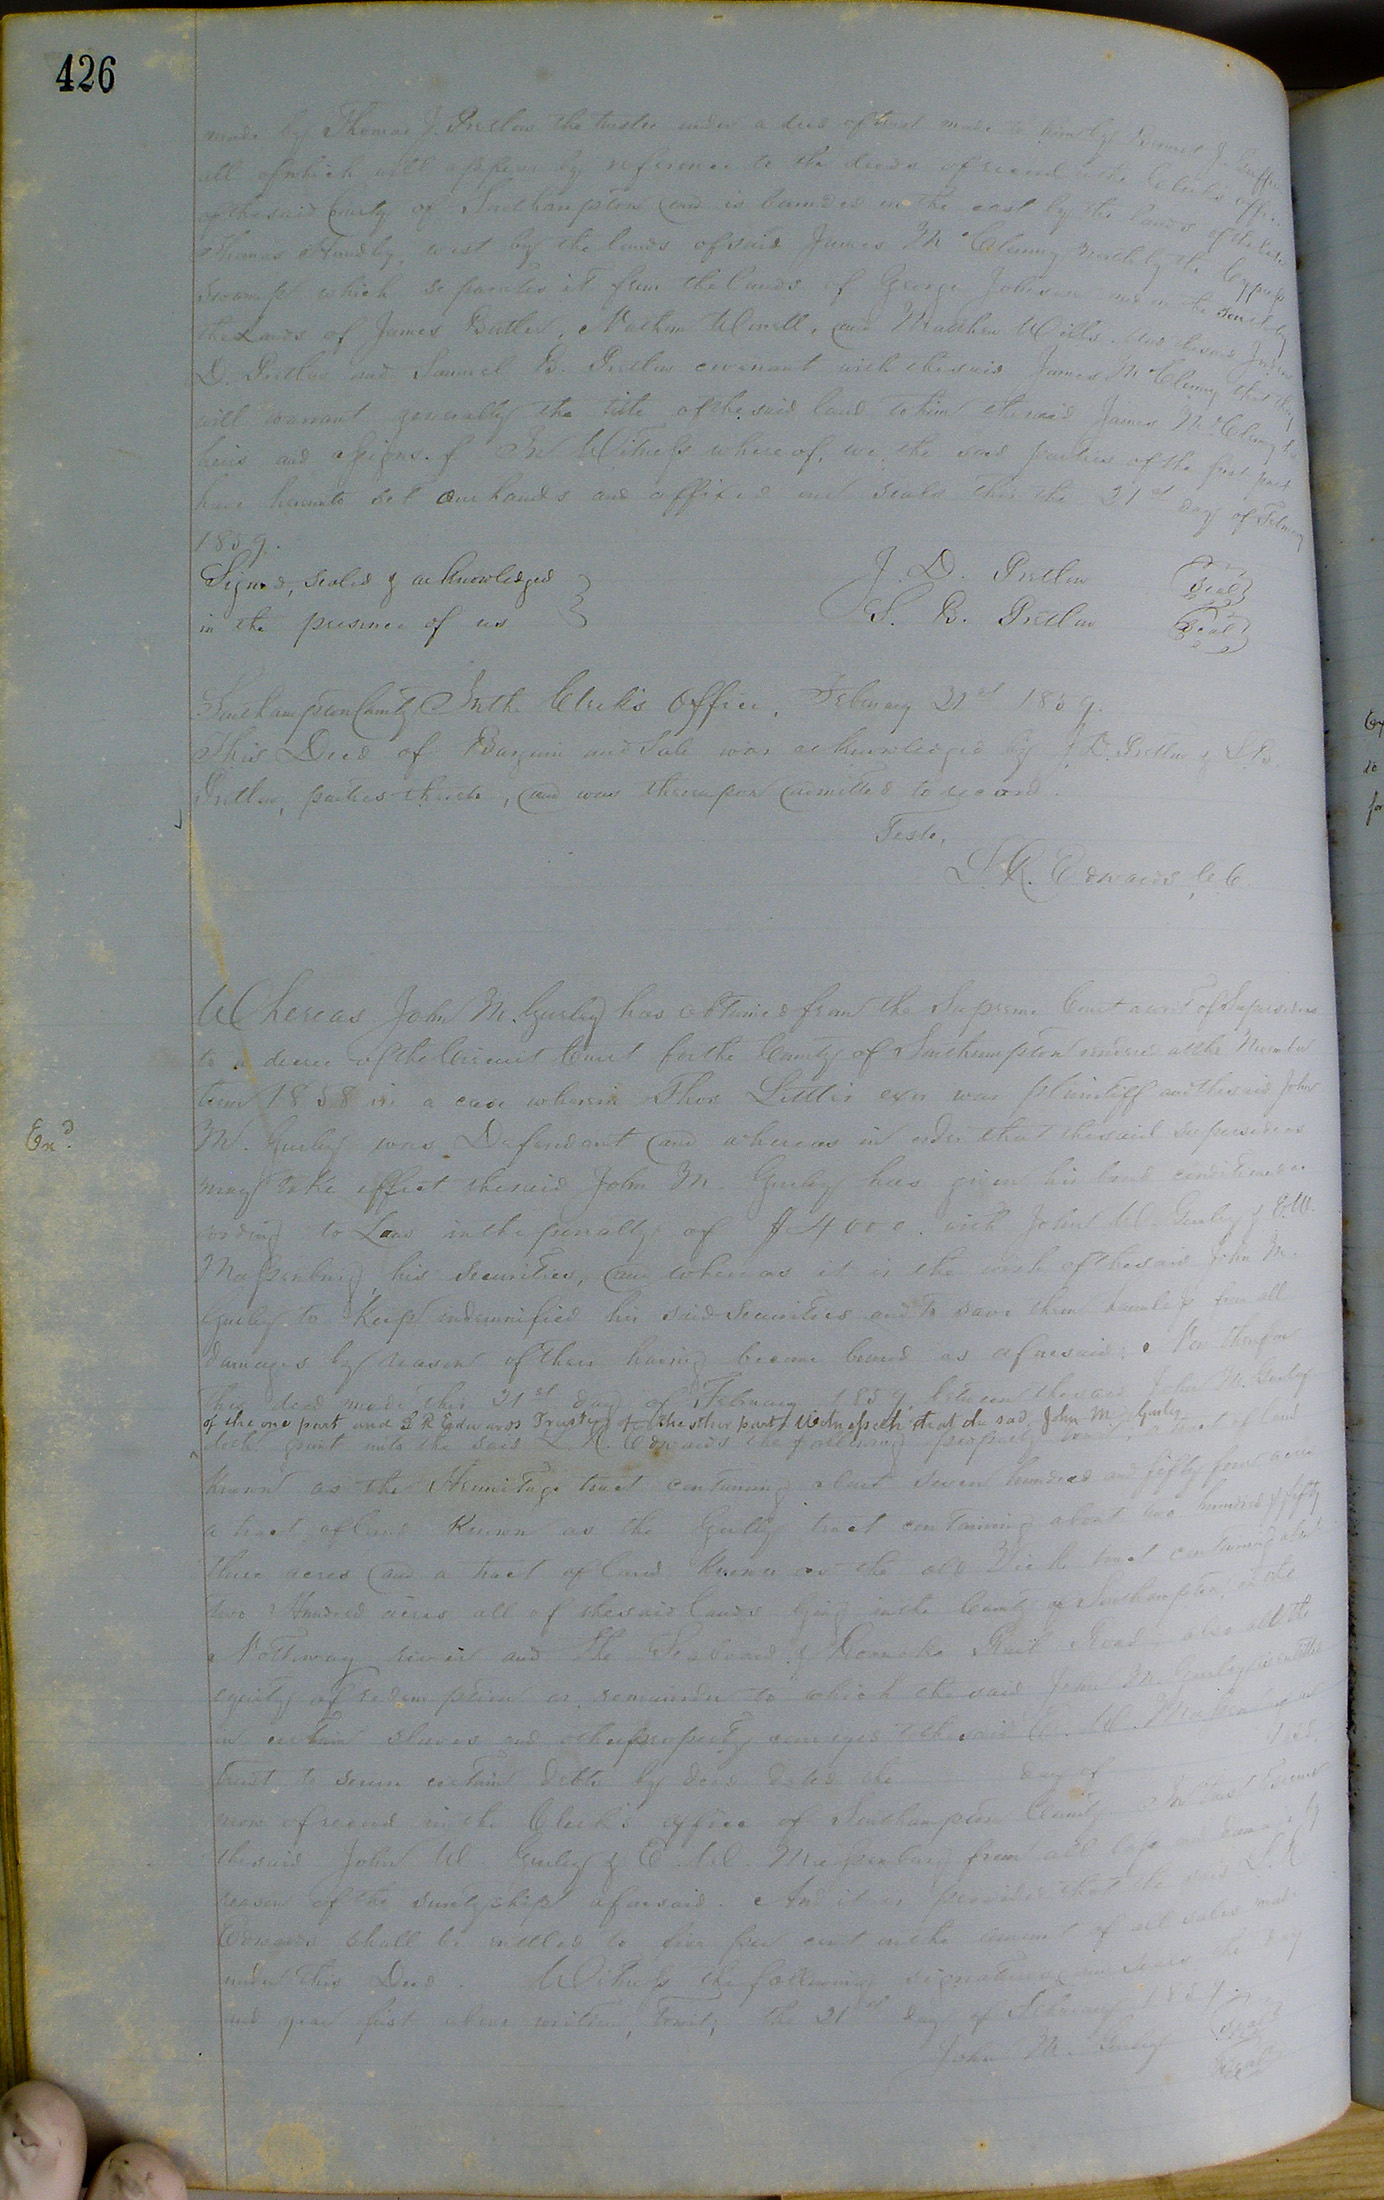 426
made by Thomas J. Pretlow the trustee under a deed of trust made to him by J. Griffin
all of which will appear by reference to the deeds of record in the Clerk's office
of the said County of Southampton and is bounded on the east by the lands of the late
Thomas Hundley, west by the lands of said James McClenny north by the Cypress
Swamp which separates it from the lands of George Johnson and on the South by
the Lands of James Butler, Nathan Worrell, and Matthew Wills. And the said
D. Pretlow and Samuel B. Pretlow covenant with the said James McClenny that they
will warrant generally the title of the said land to him the said James McClenny his
heirs and assigns. In Witness whereof, we the said parties of the first part
have hereunto set our hands and affixed our seals this the 21st day of February
1859.
Signed, sealed & acknowledged J. D. Pretlow Seal
in the presence of us S. B. Pretlow Seal
Southampton County In the Clerk's Office, February 21st 1859.
This Deed of Bargain and Sale was acknowledged by J. D. Pretlow & S. B.
Pretlow, parties thereto, and was thereupon admitted to record.
Teste,
L. R. Edwards, C C
Whereas John M. Gurley has obtained from the Supreme Court a writ of Supersedeas
to a decree of the Circuit Court for the County of Southampton rendered at the November
term 1858 in a case wherein Thos Little's exor was plaintiff and the said John
Exd.
M. Gurley was Defendant and whereas in order that the said supersedeas
may take effect the said John M. Gurley has given his bond conditioned ac-
cording to Law in the penalty of $4000. with John W. Gurley & E. W.
Massenburg his Securities, and whereas it is the wish of the said John M.
Gurley to keep indemnified his said Securities and to save them harmless from all
damages by reason of their having become bound as aforesaid: Now therefore
this deed made this 21st day of February 1859, between the said John M. Gurley
of the one part and L R Edwards Trustee of the other part Witnesseth that the said John M. Gurley
doth grant unto the said L. R. Edwards the following property to wit: a tract of land
known as the Hermitage tract containing about seven hundred and fifty four acres
a tract of land known as the Gurley tract containing about two hundred & fifty
three acres and a tract of land known as the old tract containing about
two Hundred acres all of the said lands lying in the County of Southampton, on the
Nottoway river and the Seaboard & Roanoke Rail Road also all the
equity of redemption or remainder to which the said John M. Gurley is entitled
in certain slaves and other property conveyed to the said E. W. Massenburg in
trust to secure certain debts by deed dated the day of
now of record in the Clerk's office of Southampton County. In trust to secure
the said John W. Gurley & E. W. Massenburg from all loss and damage by
reason of the suretyship aforesaid. And it is provided that the said L. R
Edwards shall be entitled to five per cent on the amount of all sales made
under this Deed. Witness the following signatures and seals the day
and year first above written, to wit, the 21st day of February 1859.
John M. Gurley Seal
Seal